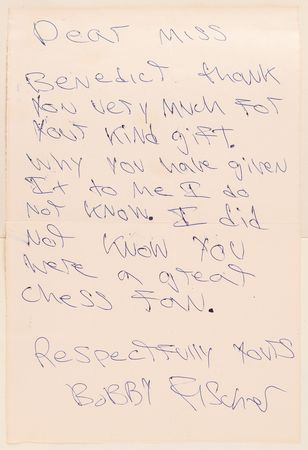 Dear Miss
Benedict thank
you very much for
your kind gift.
Why you have given
It to me I do
not know. I did
not know you
were a great
chess fan.
Respectfully yours
Bobby Fischer